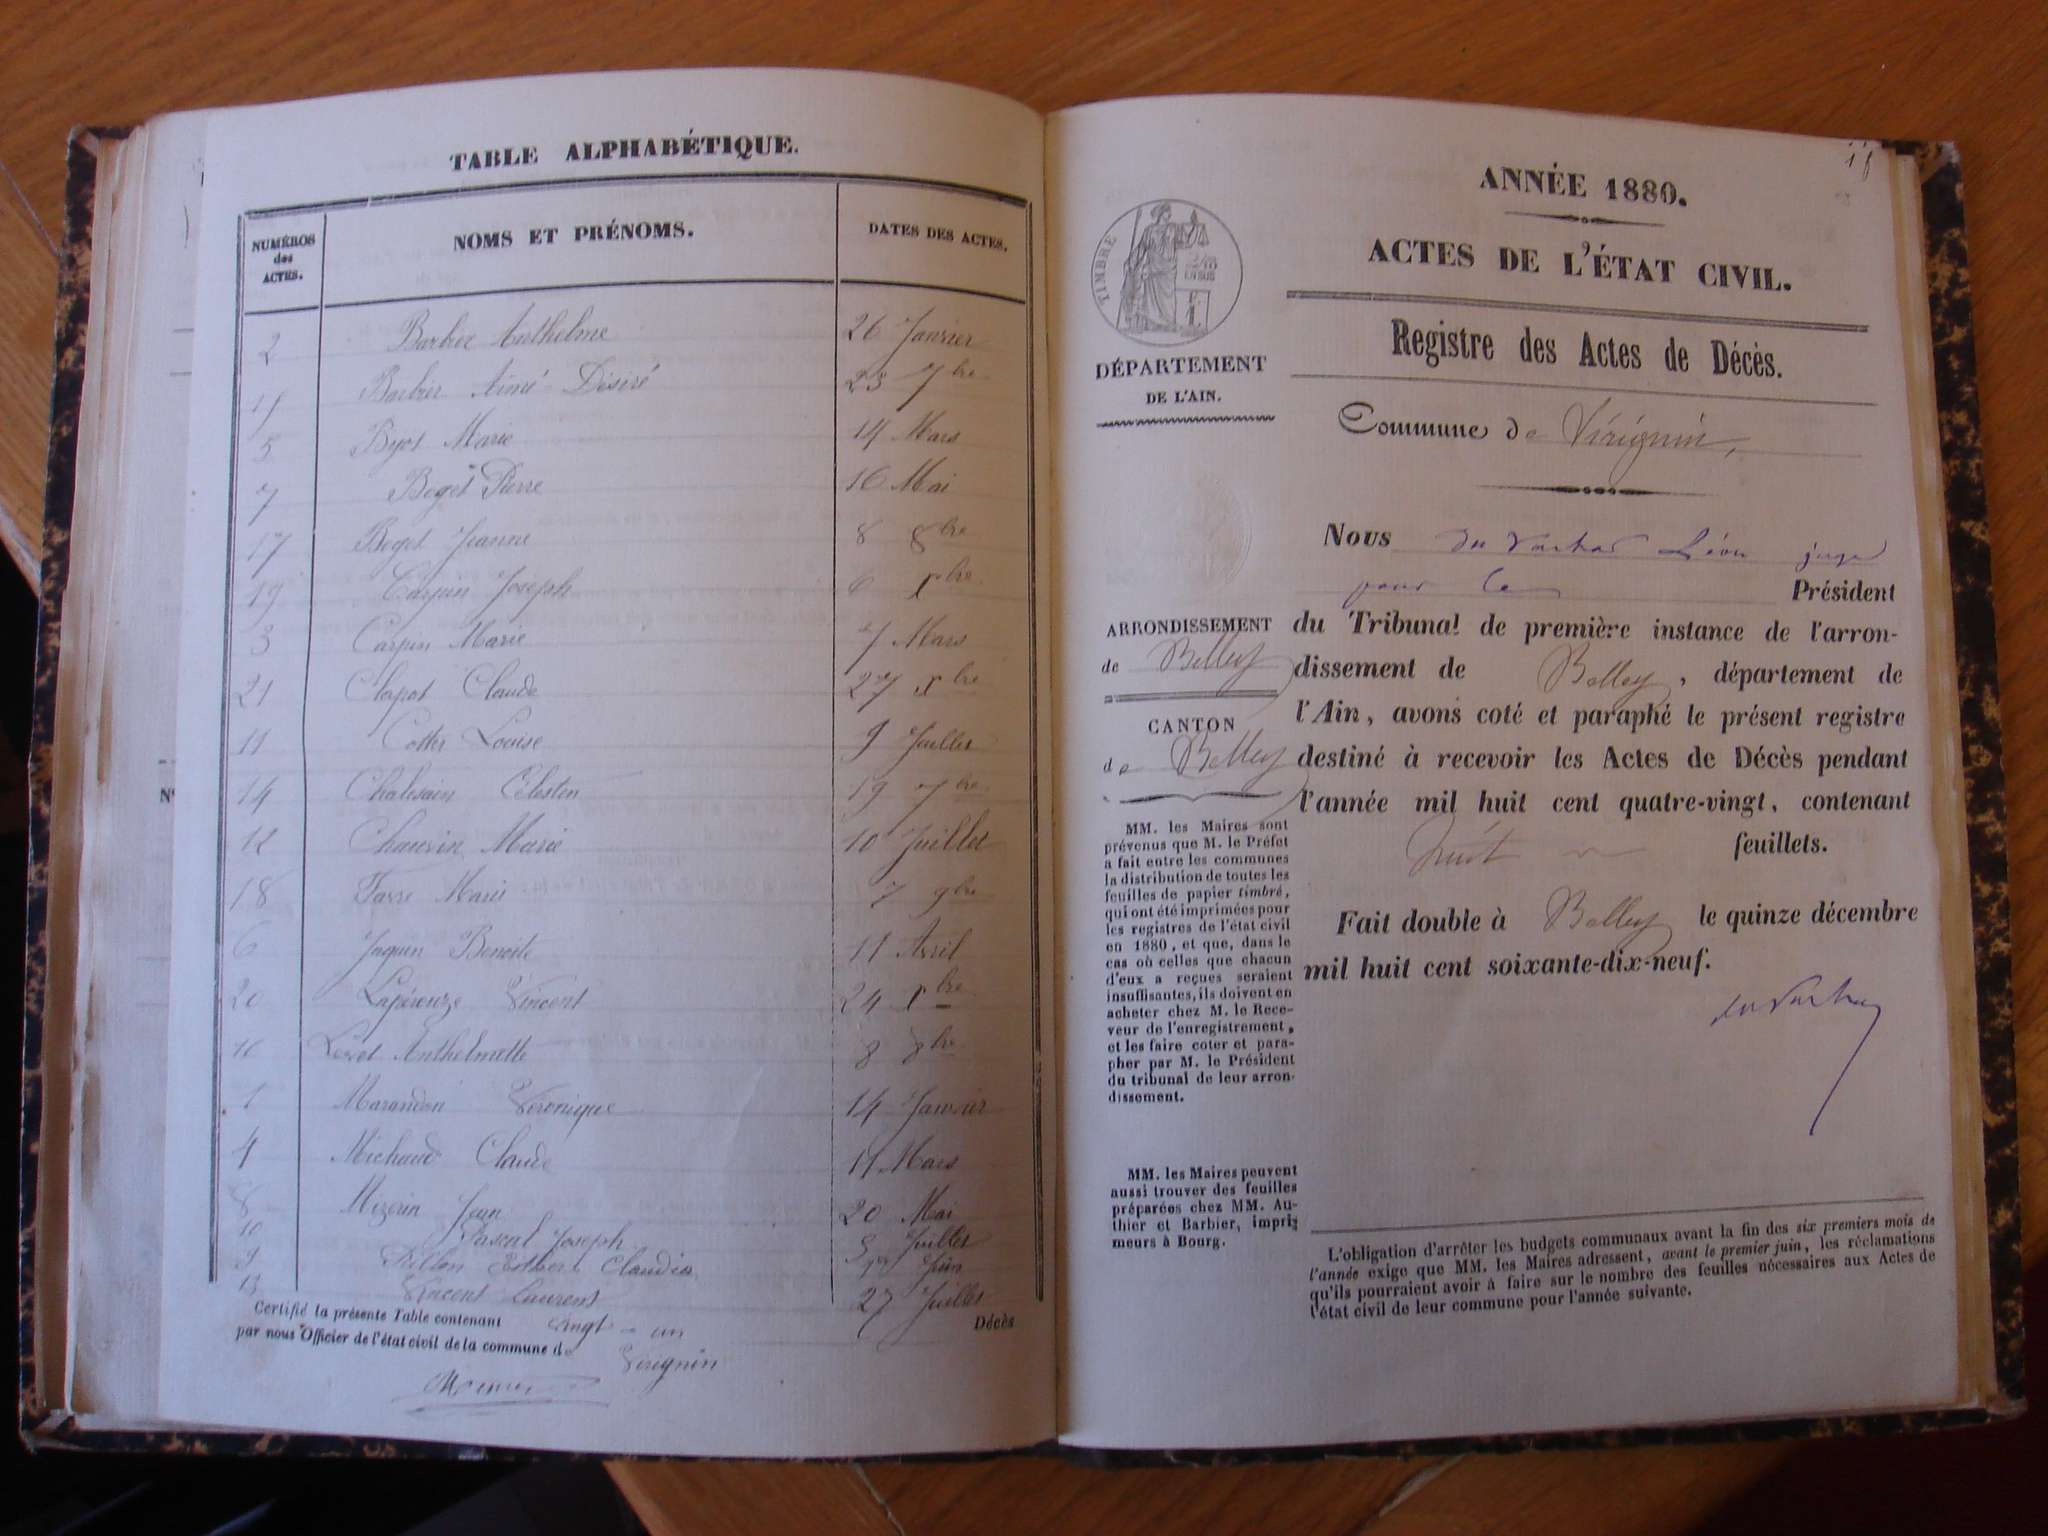 TABLE ALPHABÉTIQUE.
NUMÉROS des ACTES. NOMS ET PRÉNOMS. DATES DES ACTES.
2 Barbier Anthelme 26 Janvier
15 Barbier Aimé Désiré 23 7bre
5 Byot Marie 14 Mars
7 Boget Pierre 16 Mai
17 Boget Jeanne 8 8bre
19 Carpin Joseph 6 Xbre
3 Carpin Marie 7 Mars
21 Clapot Claude 27 Xbre
11 Cottet Louise 9 Juillet
14 Célesten 19 7bre
12 Chauvin Marie 10 Juillet
18 Marie 7 9bre
6 Jaquin Benoite 11 Avril
20 Lapérouze Vincent 24 Xbre
16 Levet Anthelmette 8 8bre
1 Marandon Véronique 14 Janvier
4 Michaud Claude 11 Mars
8 Mizerin Jean 20 Mai
10 Pascal Joseph 5 Juillet
9 Claudia Juin
13 Vincent Laurent 27 Juillet
Certifié la présente Table contenant vingt-un Décès
par nous Officier de l'état civil de la commune de Virignin
11
ANNÉE 1880.
ACTES DE L'ÉTAT CIVIL.
TIMBRE
2/10 EN SUS
DÉPARTEMENT
DE L'AIN.
Registre des Actes de Décès.
Commune de Virignin,
Nous Léon juge
pour le Président
du Tribunal de première instance de l'arron-
dissement de Belley, département de
l'Ain, avons coté et paraphé le présent registre
destiné à recevoir les Actes de Décès pendant
l'année mil huit cent quatre-vingt, contenant
huit feuillets.
Fait double à Belley le quinze décembre
mil huit cent soixante-dix-neuf.
ARRONDISSEMENT
de Belley
CANTON
de Belley
MM. les Maires sont
prévenus que M. le Préfet
a fait entre les communes
la distribution de toutes les
feuilles de papier timbré,
qui ont été imprimées pour
les registres de l'état civil
en 1880, et que, dans le
cas où celles que chacun
d'eux a reçues seraient
insuffisantes, ils doivent en
acheter chez M. le Rece-
veur de l'enregistrement,
et les faire coter et para-
pher par M. le Président
du tribunal de leur arron-
dissement.
MM. les Maires peuvent
aussi trouver des feuilles
préparées chez MM. Au-
thier et Barbier, impri-
meurs à Bourg.
L'obligation d'arrêter les budgets communaux avant la fin des six premiers mois de
l'année exige que MM. les Maires adressent, avant le premier juin, les réclamations
qu'ils pourraient avoir à faire sur le nombre des feuilles nécessaires aux Actes de
l'état civil de leur commune pour l'année suivante.